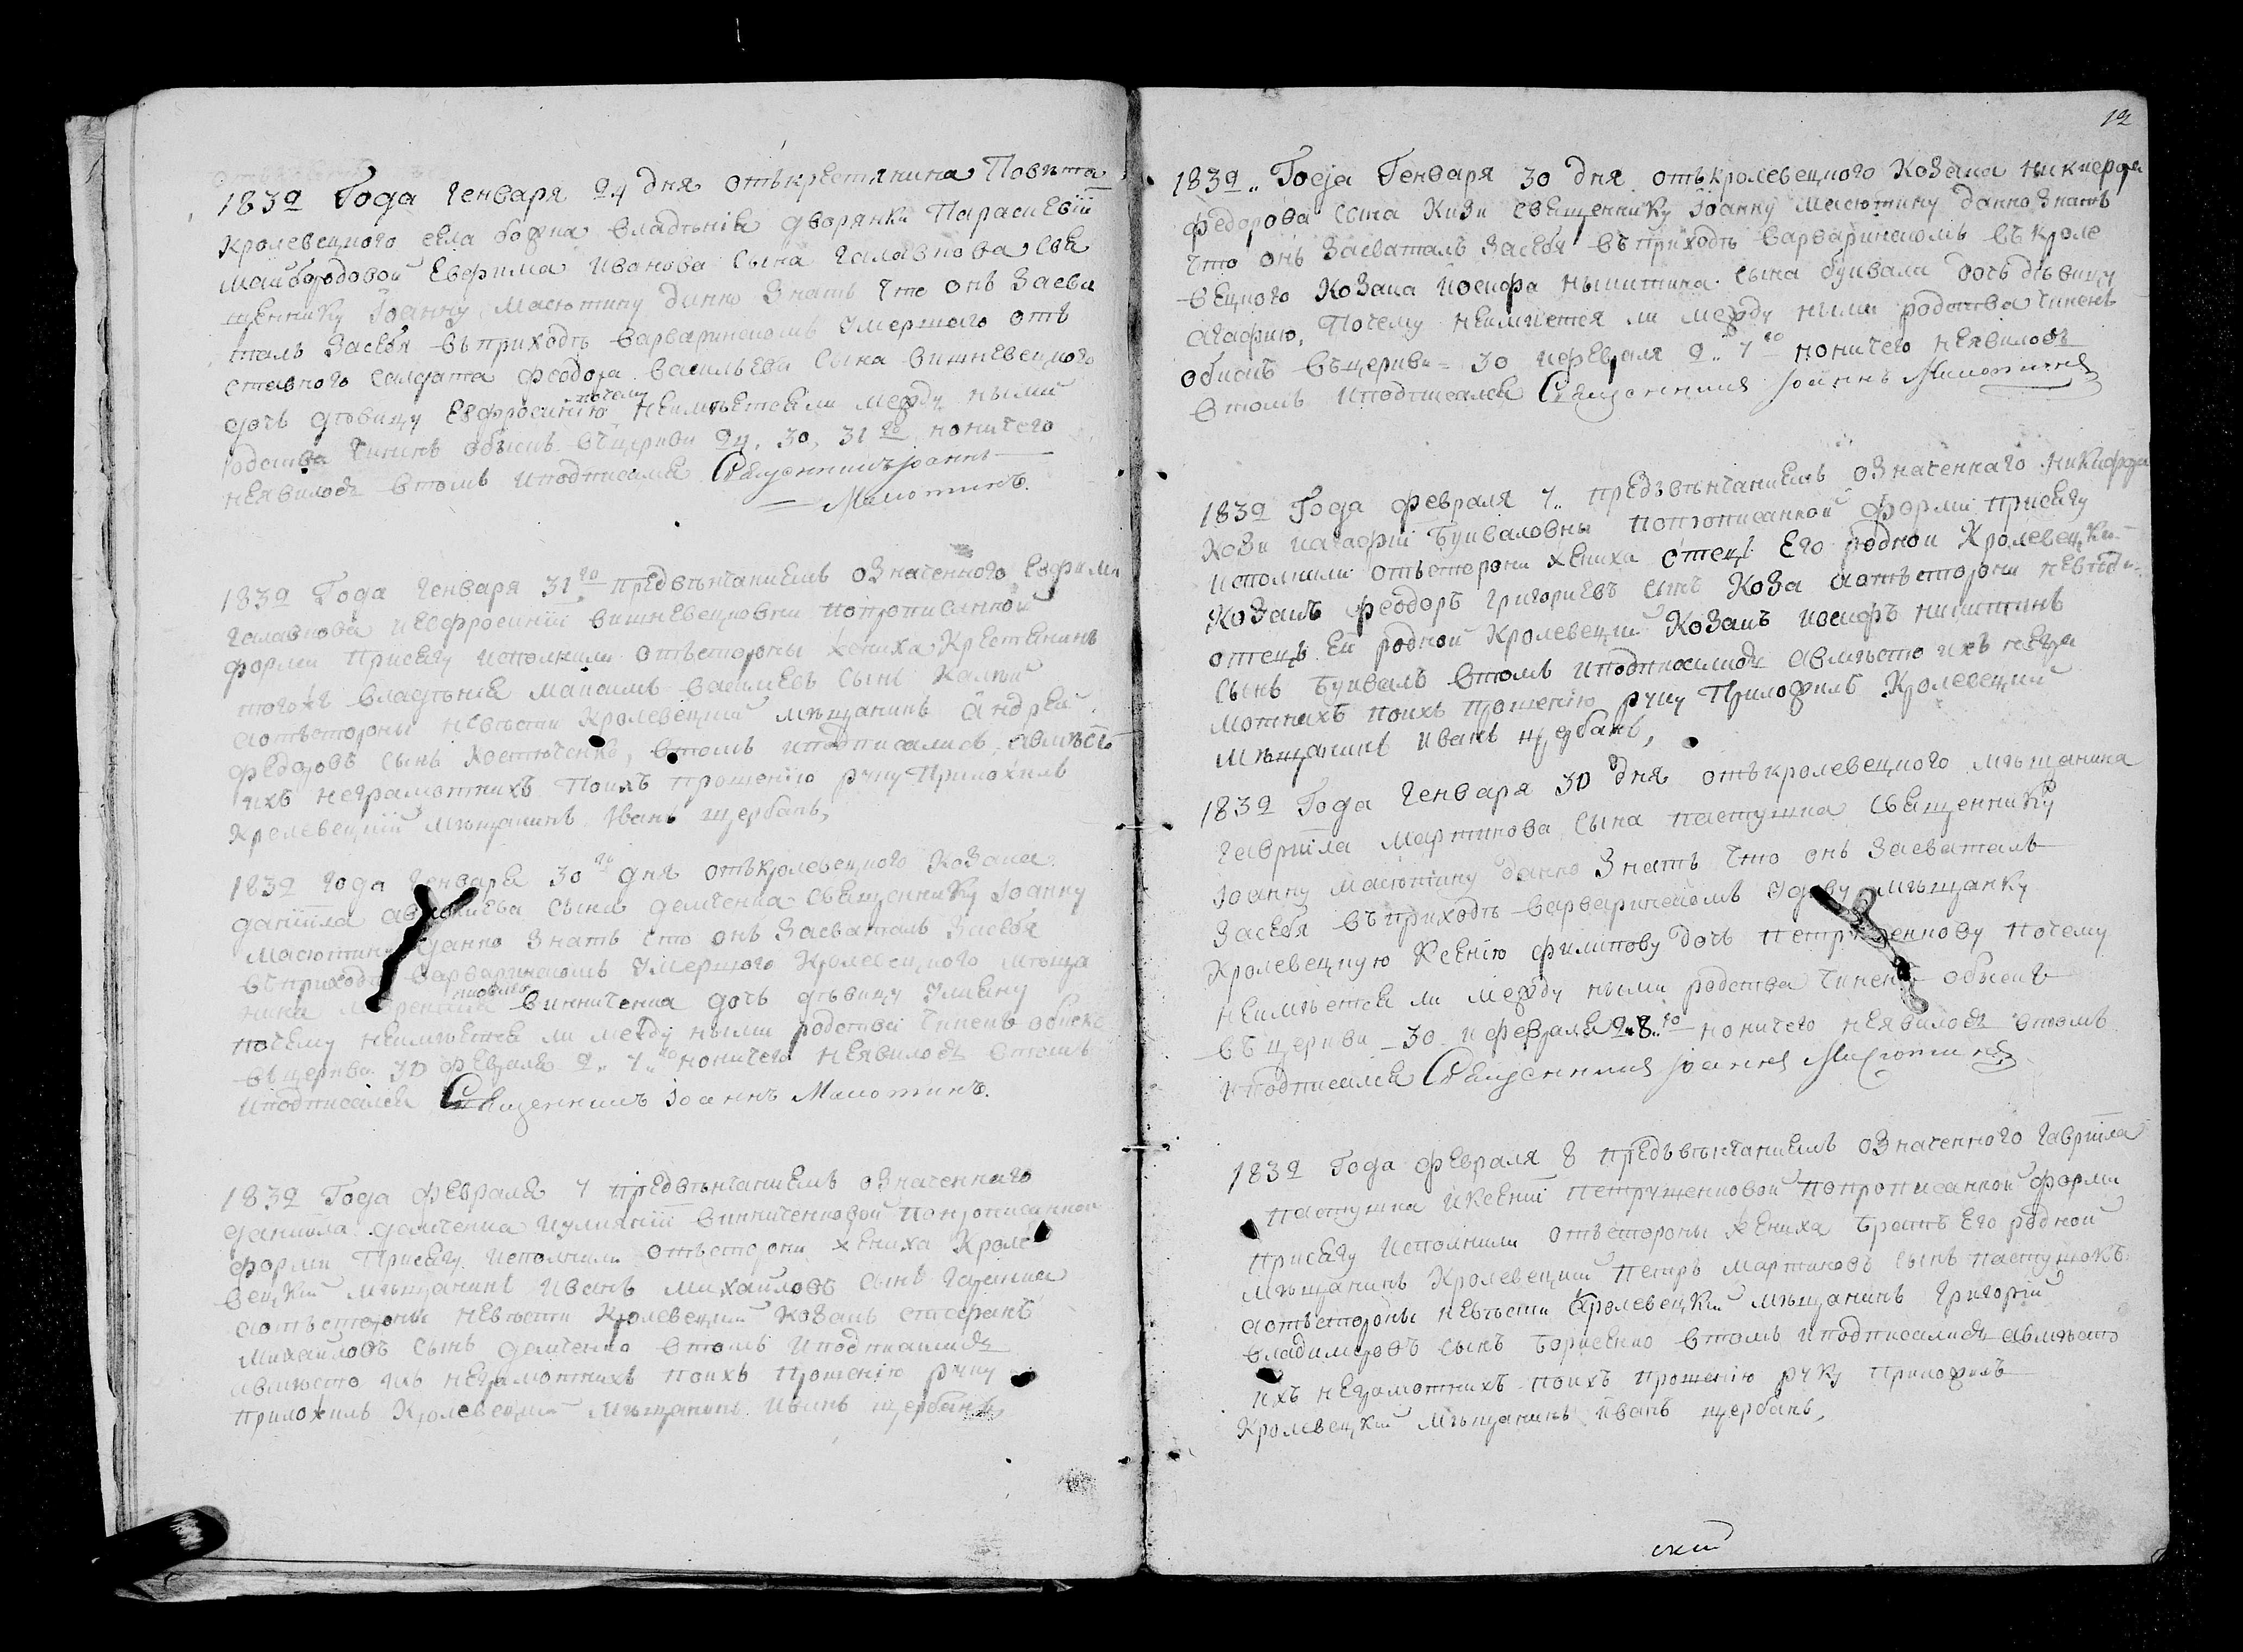 1832 Года Генваря 24 дня отъ крестянина Повѣта
Кролевецкого села владѣнія дворянки Параскевіи
Майбородовой Евфима Иванова Сына Свя
щеннику Іоанну Масютину данно Знать Что онъ Засва
талъ Засебя въ приходѣ варваринскомъ Умершого отъ
ставного Салдата Феодора Васильева Сына вишневецкого
дочь дѣвицу Евфросинію почему неимѣетсяли между ными
родства Чиненъ обыскъ въ церкви 24, 30, 31го но ничего
неявилось втомъ иподписался Священникъ Іоаннъ
Масютинъ.
1832 Года Генваря 31го предвѣнчаниемъ означенного Евфима
и Евфросиніи вишневецковны попрописанной
форми Присягу исполнили отъ стороны жениха Крестянинъ
тогожъ владѣнія Василиевъ Сынъ
а отъ стороны невѣсти Кролевецкий мѣщанинъ Андрей
Федоровъ сынъ Костюченко, втомъ иподписались, авмѣсто
ихъ неграмотнихъ Поихъ прошенію руку Приложилъ
Кролевецкий мѣщанинъ Иванъ щербань,
1832 года Генваря 30го дня отъ кролевецкого Козака
даніила сына демченка Священнику Іоанну
Масютину данно Знать что онъ Засваталъ Засебя
въ приходѣ варваринскомъ Умершого Кролевецкого мѣща
нина винниченка дочь дѣвицу Улияну
почему неимѣется ли между ными родства Чиненъ обыскъ
въ церкви 30 февраля 2, 7го но ничего неявилось втомъ
иподписался Священникъ Іоаннъ Масютинъ.
1832 Года февраля 7 предвѣнчаниемъ означенного
даниила демченка иулияніи винниченковой попрописанной
форми Присягу исполнили отъ стороны жениха Кроле
вецкий мѣщанинъ Иванъ Михайловъ Сынъ
а отъ стороны невѣсти Кролевецкий козакъ стефанъ
михайловъ сынъ демченко втомъ иподписались
авмѣсто ихъ неграмотнихъ поихъ прошенію руку
приложилъ Кролевецкий мѣщанинъ Иванъ щербань,
12
1832 Года Генваря 30 дня отъ кролевецкого Козака никифора
федорова сына Кози священнику Іоанну Масютину данно Знать
что онъ Засваталъ Засебя въ приходѣ варваринскомъ въ кроле
вецкого Козака Иосифа никитина сына буивала дочь дѣвицу
агафию, Почему неимѣется ли между ными родства Чиненъ
обыскъ въ церкви 30 ифевраля 2, 7го но ничего неявилось
втомъ иподписался Священникъ Іоаннъ Масютинъ
1832 Года февраля 7, предъвѣнчаниемъ означенного никифора
Кози иагафіи буиваловны попрописанной форми присягу
исполнили отъ стороны жениха отец Его родной Кролевецкий
Козакъ Феодоръ григориевъ сынъ Коза а отъ стороны невѣсти
отецъ ей родной Кролевецкий Козакъ иосифъ никитинъ
сынъ буивалъ втомъ иподписались авмѣсто ихъ негра
мотнихъ поихъ прошенію руку Приложилъ Кролевецкий
Мѣщанинъ иванъ щербань,
1832 Года Генваря 30 дня отъ кролевецкого мѣщанина
гавриіла мартинова сына пастушка Священнику
Іоанну масютину данно Знать что онъ Засваталъ
Засебя въ приходѣ варваринскомъ удову мѣщанку
Кролевецкую Ксенію филипову дочь петрушенкову почему
неимѣется ли между ными родства Чиненъ обыскъ
въ церкви 30 ифевраля 2, 8го но ничего неявилось втомъ
иподписался Священникъ Іоаннъ Масютинъ
1832 Года февраля 8 предъвѣнчаниемъ означенного гавриіла
пастушка иксеніи петрушенковой попрописанной форми
присягу исполнили отъ стороны жениха братъ Его родной
мѣщанинъ Кролевецкий петръ мартиновъ сынъ пастушокъ
а отъ стороны невѣсти Кролевецкий мѣщанинъ григорій
владимеровъ сынъ борисенко втомъ иподписались авмѣсто
ихъ неграмотнихъ поихъ прошенію руку приложилъ
Кролевецкий мѣщанинъ иванъ щербань,
ский